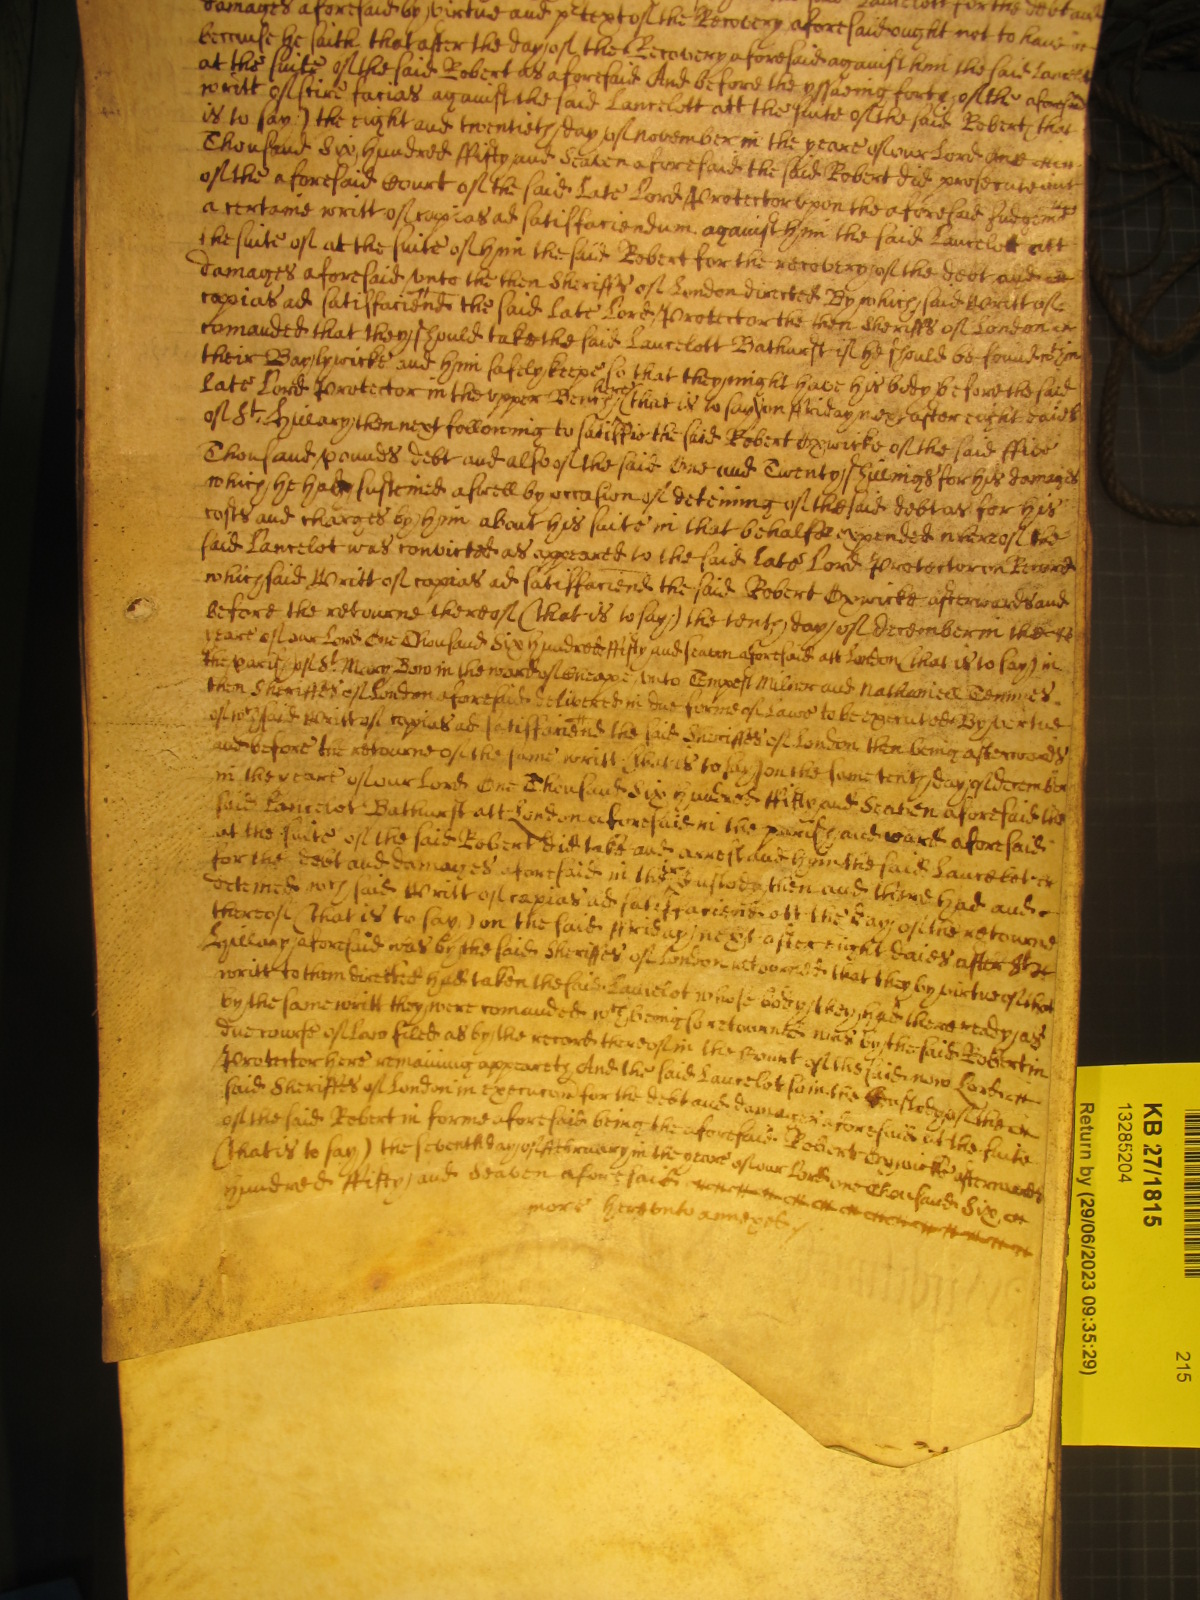 damages aforesaid by virtue and ptext of the Recovery aforesaid ought not to have
because he saith that after the day of the Recovery aforesaid against him the said Lancelott
at the suite of the said Robert as aforesaid And before the yssueing forth of the aforesaid
writt of scire facias against the said Lancelott att the suite of the said Robert (that
is to say) the eight and twentieth day of november in the yeare of our Lord One
Thousand Six hundred ffifty and Seaven aforesaid the said Robert did prosecute out
of the aforesaid Court of the said Late Lord Protector upon the aforesaid Judgemt
a certaine writt of capias ad satisfaciendum against him the said Lancelott att
the suite of at the suite of him the said Robert for the recovery of the debt and
damages aforesaid unto the then Sheriffs of London directed By which said writt of
capias ad satisfaciend the said Late Lord Protector the then Sheriffs of London
comanded that they should take the said Lancelott Bathurst if he should be found wthin
their Baylywicke and him safely keepe so that they might have his body before the said
Late Lord Protector in the upper Bench here (that is to say) on Friday next after eight daies
of St. Hillary then next following to satisfie the said Robert Oxwicke of the said ffive
Thousand pounds debt and also of the said One and Twenty shillings for his damages
which he had susteined aswell by occasion of deteining of the said debt as for his
costs and charges by him about his suite in that behalfe expended whereof the
said Lancelot was convicted as appeared to the said Late Lord Protector on Record
which said Writt of capias ad satisfaciend the said Robert Oxwicke afterwards and
before the retourne thereof (that is to say) the tenth day of december in the
yeare of our Lord One Thousand Six hundred ffifty and seaven aforesaid att London (that is to say) in
the parish of St. Mary Bow in the ward of Cheape unto Tempest Milner and Nathaniell Temmes
then Sheriffes of London aforesaid delivered in due forme of Lawe to be executed By vertue
of wch said Writt of capias ad satisfaciend the said Sheriffes of London then being afterwards
and before the retourne of the same writt (that is to say) on the same tenth day of december
in the yeare of our Lord One Thousand Six hundred ffifty and Seaven aforesaid the
said Lancelot Bathurst att London aforesaid in the parish and ward aforesaid
at the suite of the said Robert did take and arrest and him the said Lancelot
for the debt and damages aforesaid in their Custody then and there had and
deteined wch said Writt of capias ad satisfaciend att the day of the retourne
thereof (that is to say) on the said ffriday next after eight daies after St
Hillary aforesaid was by the said Sheriffes of London retourned that they by virtue of that
writt to them directed had taken the said Lancelot whose body they had there ready as
by the same writt they were comanded wch being so retourned was by the said Robert in
due course of Law filed as by the record thereof in the Court of the said now Lord
Protector here remaining appeareth And the said Lancelot so in the Custody of the
said Sheriffes of London in execucion for the debt and damages aforesaid at the suite
of the said Robert in forme aforesaid being the aforesaid Robert Oxwicke afterwards
(that is to say) the seventh day of ffebruary in the yeare of our Lord one Thousand Six
hundred ffifty and Seaven aforesaid
more hereunto annexed
KB 27/1815
13285204
Return by (29/06/2023 09:35:29)
215